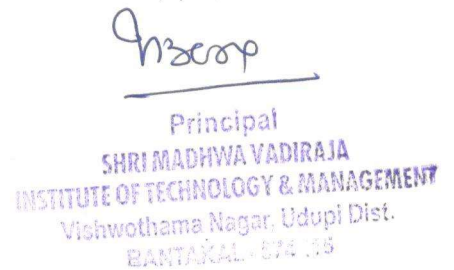 Principal
SHRI MADHWA VADIRAJA
INSTITUTE OF TECHNOLOGY & MANAGEMENT
Vishwothama Nagar, Udupi Dist.
BANTAKAL -